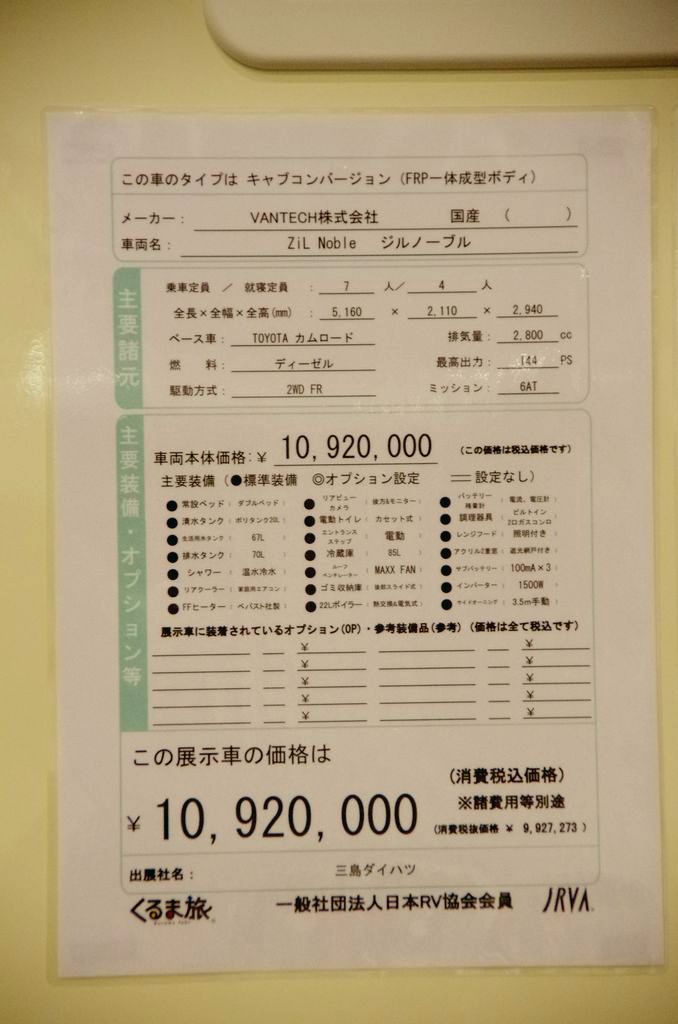 この車のタイプは キャブコンバージョン (FRP一体成型ボディ)
メーカー: VANTECH株式会社 国産 ( )
車両名: ZiL Noble ジルノーブル
主要諸元
乗車定員 / 就寝定員 : 7 人/ 4 人
全長×全幅×全高(mm) : 5,160 × 2,110 × 2,940
ベース車: TOYOTA カムロード 排気量: 2,800 cc
燃 料: ディーゼル 最高出力: 144 PS
駆動方式: 2WD FR ミッション: 6AT
主要装備・オプション等
車両本体価格:¥ 10,920,000 (この価格は税込価格です)
主要装備 (●標準装備 ◎オプション設定 ═設定なし)
●常設ベッド( ダブルベッド ) ●リアビューカメラ( 後方&モニター ) ●バッテリー残量計( 電流、電圧計 )
●清水タンク( ポリタンク20L ) ●電動トイレ( カセット式 ) ●調理器具( ビルトイン2口ガスコンロ )
●生活用水タンク( 67L ) ●エントランスステップ( 電動 ) ●レンジフード( 照明付き )
●排水タンク( 70L ) ●冷蔵庫( 85L ) ●アクリル2重窓( 遮光網戸付き )
●シャワー( 温水冷水 ) ●ルーフベンチレーター( MAXX FAN ) ●サブバッテリー( 100mA×3 )
●リアクーラー( 家庭用エアコン ) ●ゴミ収納庫( 後部スライド式 ) ●インバーター( 1500W )
●FFヒーター( ベバスト社製 ) ●22Lボイラー( 熱交換&電気式 ) ●サイドオーニング( 3.5m手動 )
展示車に装着されているオプション(OP)・参考装備品(参考) (価格は全て税込です)
¥ ¥
¥ ¥
¥ ¥
¥ ¥
¥ ¥
この展示車の価格は
(消費税込価格)
¥ 10,920,000 ※諸費用等別途
(消費税抜価格 ¥ 9,927,273 )
出展社名: 三島ダイハツ
くるま旅 一般社団法人日本RV協会会員 JRVA